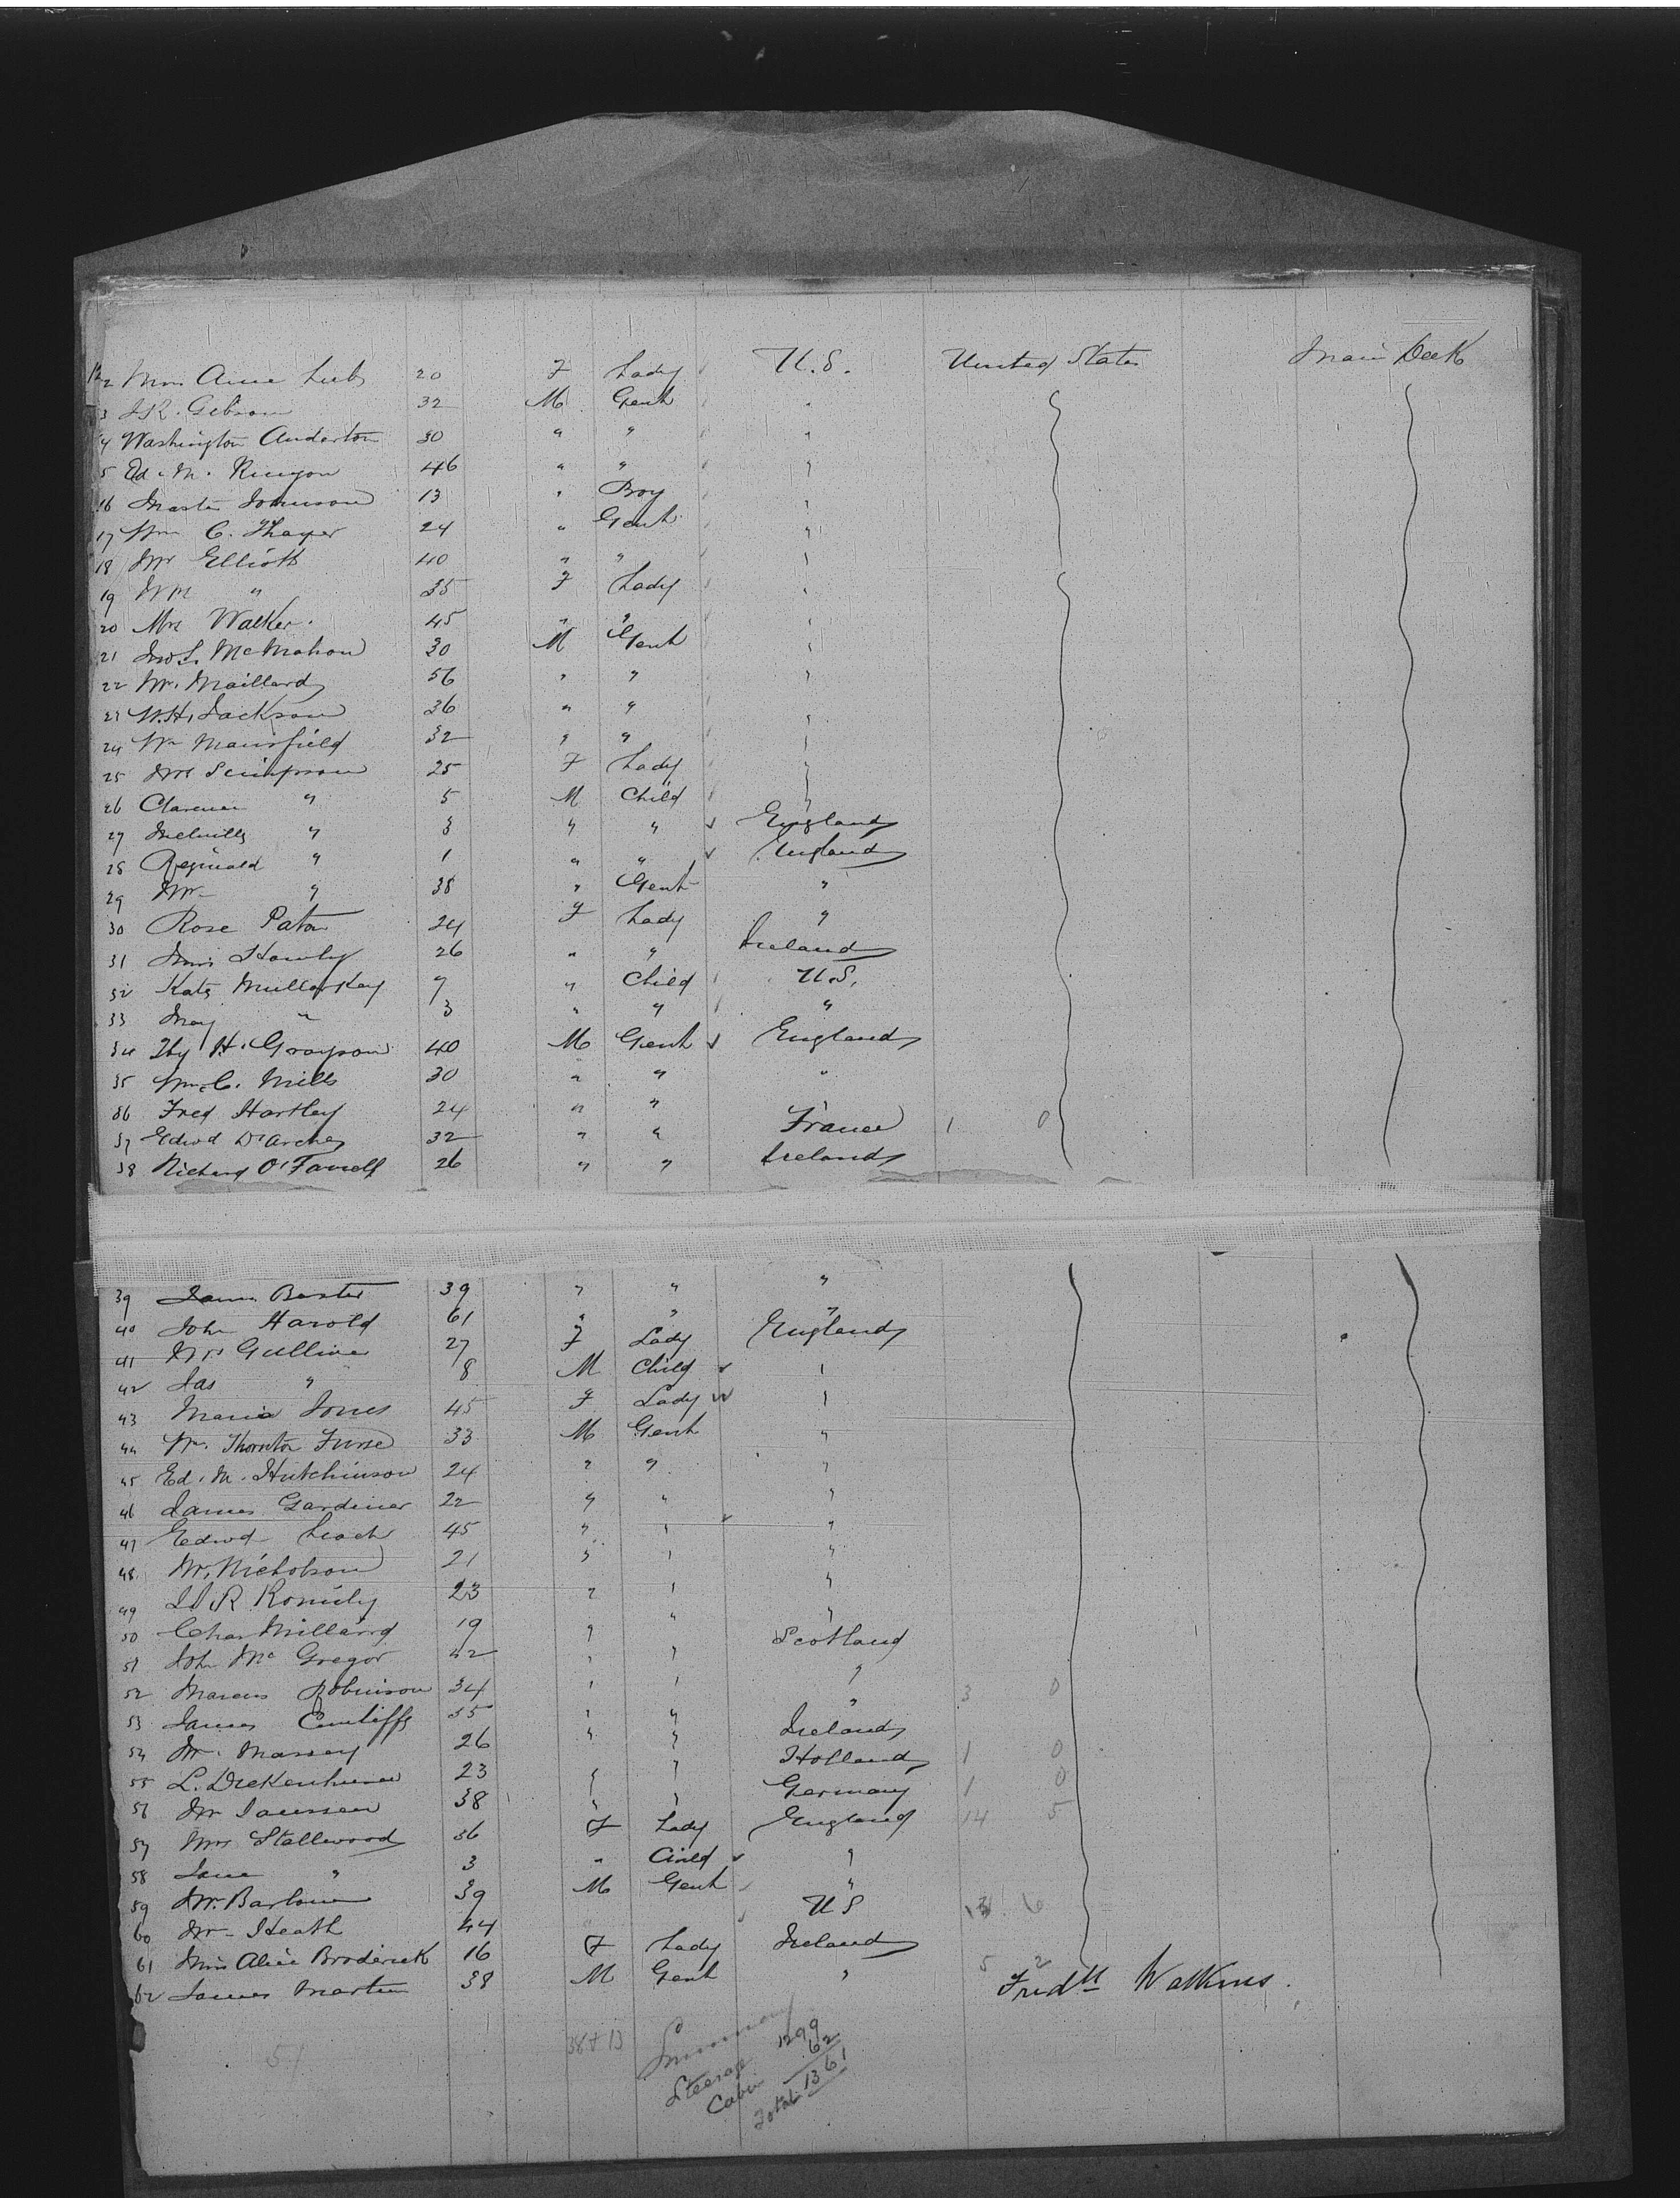 12 Miss Annie 20 F Lady U.S. United States Main Deck
3 J.R. Gibson 32 M Gent "
4 Washington Anderton 30 " " "
5 Ed. M. Runyon 46 " " "
16 Master Johnson 13 " Boy "
17 Wm C. Thayer 24 " Gent "
18 Mr Elliott 40 " " "
19 Mrs " 35 F Lady "
20 Mrs Walker 45 " " "
21 Jno S. McMahon 30 M Gent "
22 Mr. Maillard 56 " " "
23 W.H. Jackson 36 " " "
24 Wm Mansfield 32 " " "
25 Mrs Scimpson 25 F Lady "
26 Clarence " 5 M Child "
27 Melville " 3 " " England
28 Reginald " 1 " " England
29 Mr " 38 " Gent "
30 Rose Paton 24 F Lady "
31 Miss 26 " " Ireland
32 Kate Mullarkey 7 " Child U.S.
33 May " 3 " " "
34 Thy H. Grayson 40 M Gent England
35 Wm C. Mills 30 " " "
36 Fred Hartley 24 " "
37 Edwd D'Arches 32 " " France 1 0
38 Richard O'Farrell 26 " " Ireland
39 James Baxter 39 " " "
40 John Harold 61 " " "
41 Mrs Gulliver 27 F Lady England
42 Jas " 8 M Child "
43 Maria Jones 45 F Lady "
44 Wm. Thornton Furse 33 M Gent "
45 Ed. M. Hutchinson 24 " " "
46 James Gardiner 22 " " "
47 Edwd Leach 45 " " "
48 Mr. Nicholson 21 " " "
49 R Romily 23 " " "
50 Chas Millard 19 " " "
51 John McGregor 42 " " Scotland
52 Marcus Robinson 34 " " "
53 James Cunliffe 35 " " " 3 0
54 Mr. Massey 26 " " Ireland
55 L. 23 " " Holland 1 0
56 Mr Janssen 38 " " Germany 1 0
57 Mrs Stallwood 36 F Lady England 14 5
58 Jane " 3 " Child "
59 Mr. Barlow 39 M Gent "
60 Mr Heath 44 " U S 6
61 Miss Alice Broderick 16 F Lady Ireland
62 James Martin 38 M Gent " 5 2
Fredk Watkins.
51 38 + 13 Summary
Steerage 1299
Cabin 62
Total 1361